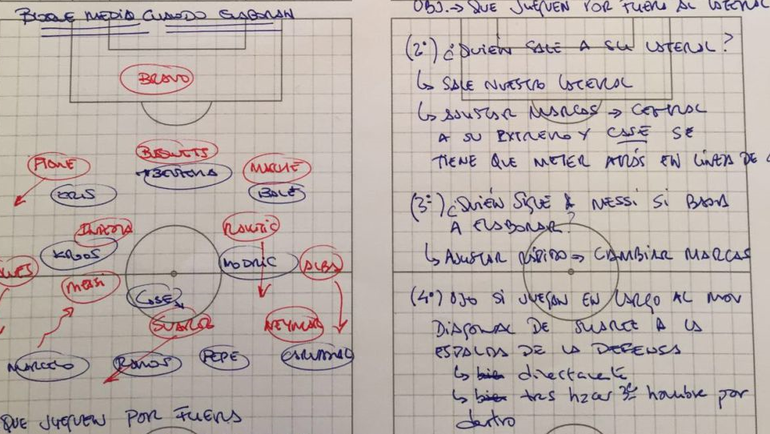 BLOQUE MEDIO CUANDO ELABORAN
BRAVO
PIQUE
BUSQUETS
MACHE
CRIS
BENZEMA
BALE
INIESTA
RAKITIC
KROOS
MODRIC
ALBA
MESSI
CASE
SUAREZ
NEYMAR
MARCELO
RAMOS
PEPE
CARVAJAL
QUE JUEGUEN POR FUERA
OBJ. → QUE JUEGUEN POR FUERA AL LATERAL
(2º) ¿QUIÉN SALE A SU LATERAL?
↳ SALE NUESTRO LATERAL
↳ AJUSTAR MARCAS → CENTRAL
A SU EXTREMO Y CASE SE
TIENE QUE METER ATRÁS EN LÍNEA DE
(3º) ¿QUIÉN SIGUE A MESSI SI BAJA
A ELABORAR?
↳ AJUSTAR RÁPIDO → CAMBIAR MARCAS
(4º) OJO SI JUEGAN EN LARGO AL MOV
DIAGONAL DE SUAREZ A LA
ESPALDA DE LA DEFENSA
↳ bien directamente
↳ bien tras hacer 3er hombre por
dentro